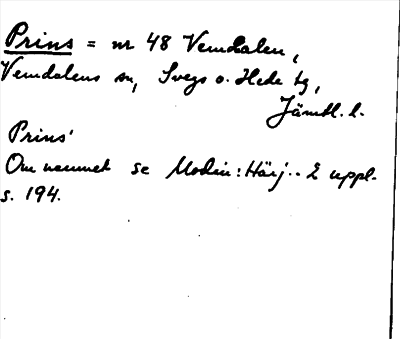 Prins = nr 48 Vemdalen,
Vemdalens sn, Svegs o. Hede tg,
Jämtl. l.
Prins'
Om namnet se Modin: Härj.. 2 uppl.
s. 194.